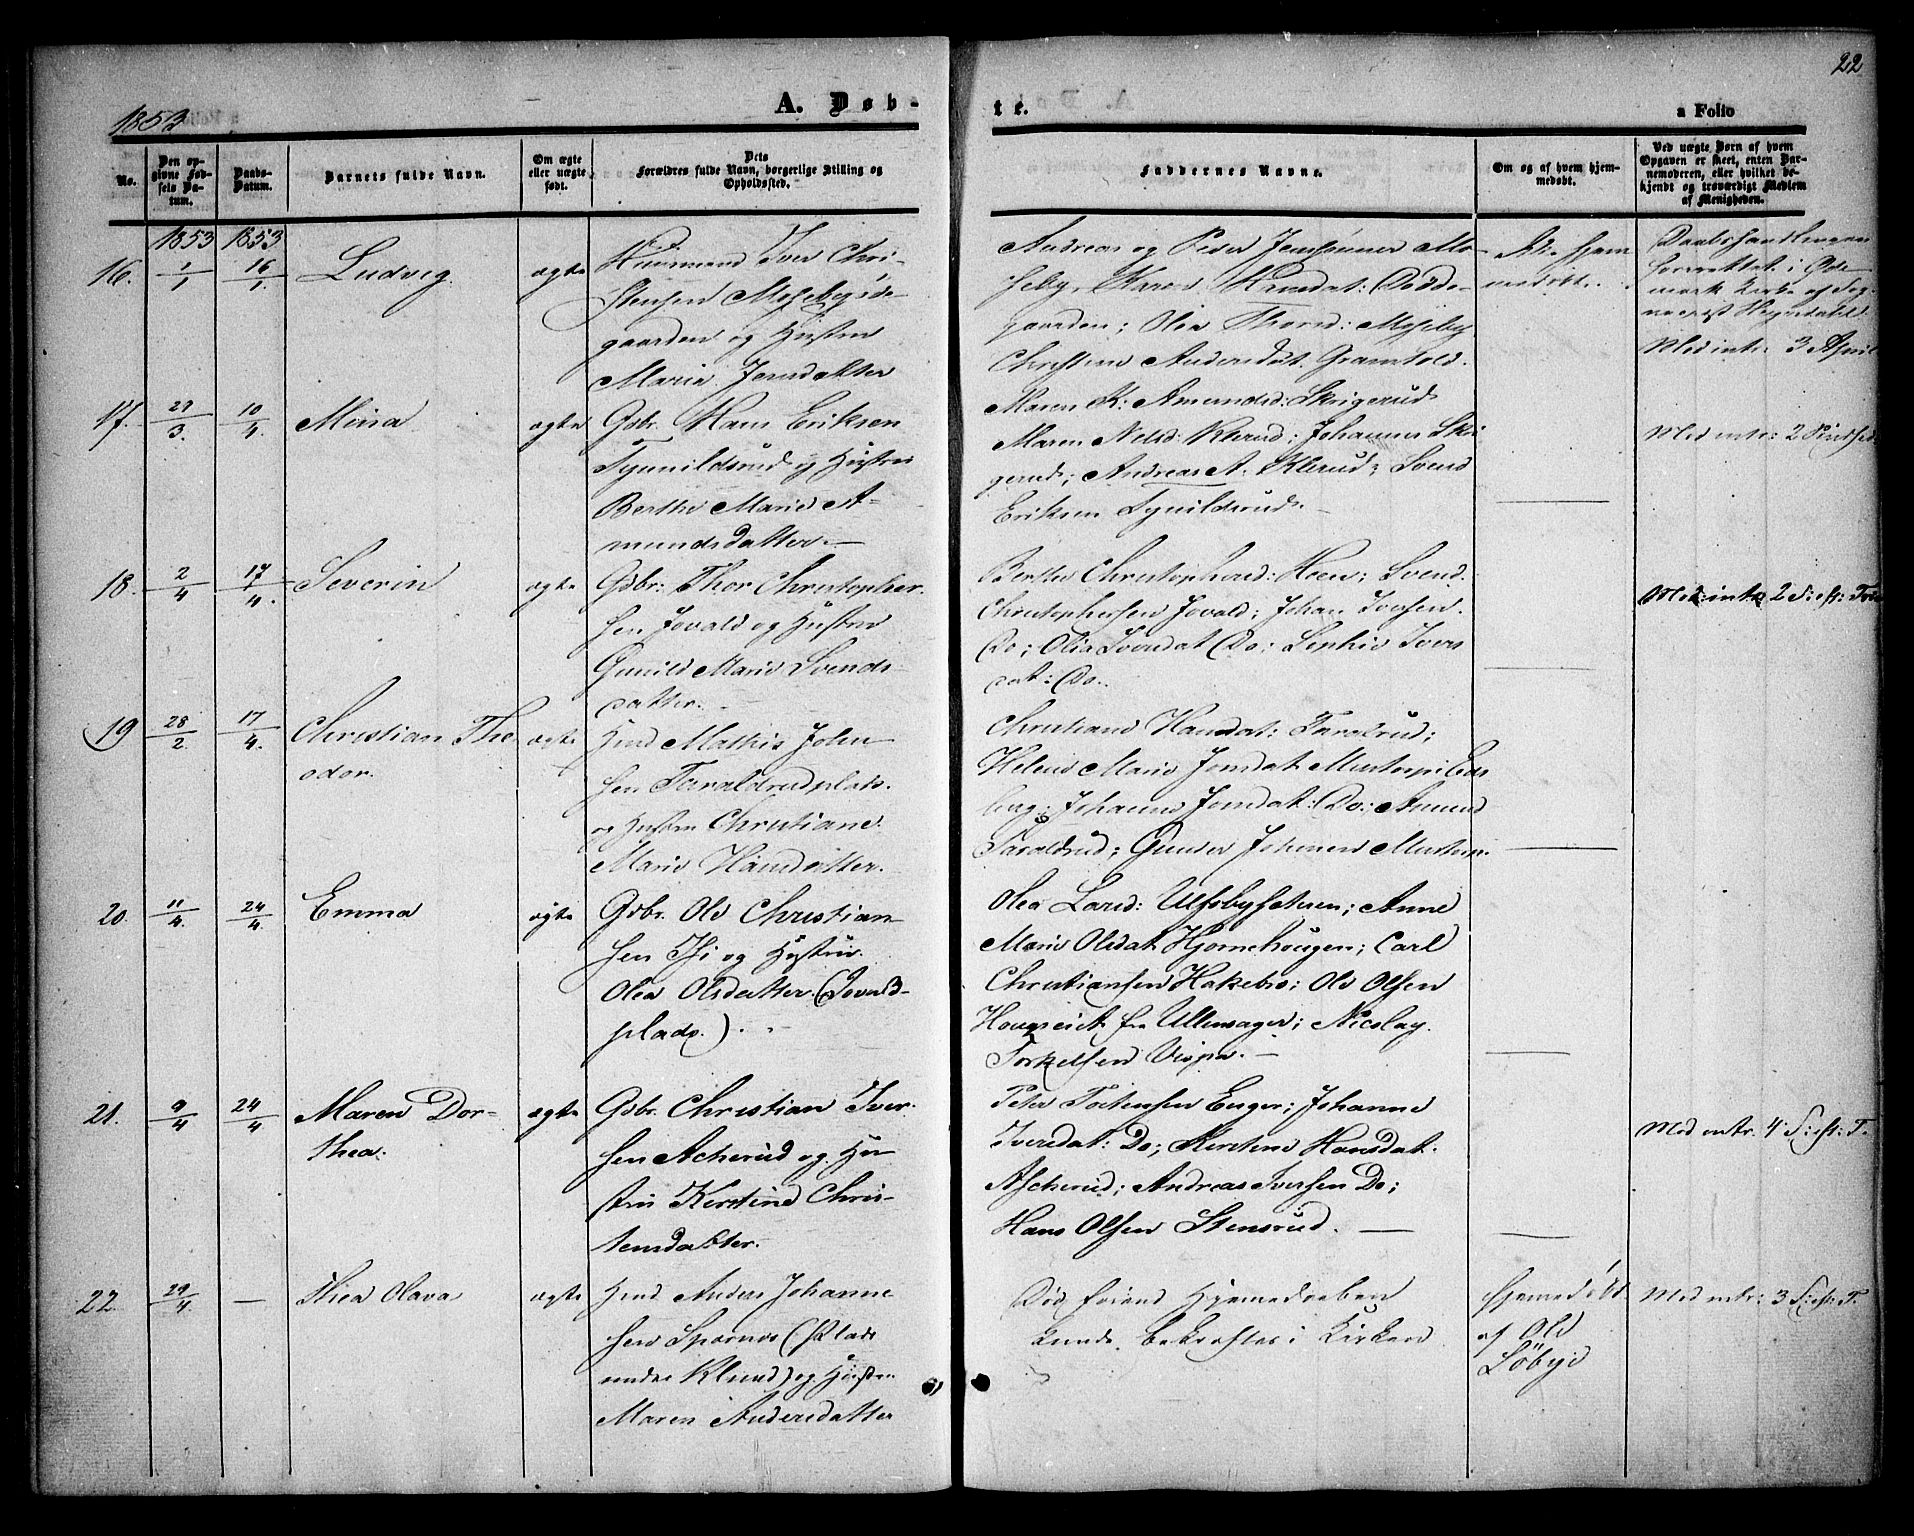 22
1853
A. Døb-
te.
a Folio
No.
Den op-
givne Fød-
sels Da-
tum.
Daabs-
Datum.
Barnets fulde Navn.
Om ægte
eller uægte
født.
Dets
Forældres fulde Navn, borgerlige Stilling og
Opholdssted.
Faddernes Navne.
Om og af hvem hjem-
medøbt.
Ved uægte Børn af hvem
Opgaven er skeet, enten Bar-
nemoderen, eller hvilket be-
kjendt og troværdigt Medlem
af Menigheden.
1853 1853
16. 1/1 16/1 Ludvig ægte
Huusmand Iver Chri-
stensen Mosebyøde-
gaarden og Hustru
Maria Jensdatter
Andreas og Peder Jenssønner Mo-
seby, Karen Knudsdat: Ødde-
gaarden; Olea Thord: Moseby
Christine Andersdat. Gramtold.
Ikke hjem
medøbt.
Daabshandlingen
forrettet i Øde-
mark Kirke af Sog-
nepræst Hejerdahl
Med intr: 3 April
17. 29/3. 10/4. Mina ægte
Gbr. Hans Eriksen
Tyvuildsrud og Hustru
Berthe Marie A-
mundsdatter.—
Maren K: Amundsd: Skrigerud
Maren Nelsd: Klerud; Johannes Skri
gerud; Andreas A. Klerud; Svend
Eriksen Tyvildsrud.
Med intr: 2 Pintsed
18. 2/4 17/4. Severin ægte
Gdbr: Thor Christopher-
sen Jovald og Hustru
Gunild Marie Svends-
datter.
Berthe Christophersd: Hoen; Svend
Christophersen Jovald; Johan Iversen
Do; Olia Svendsdat Do: Sophie Ivers
dat: Do.
Med: intr 2 S: eft: Tr
19 28/2. 17/4. Christian The-
odor. ægte
Hmd Mathis John-
sen Taraldrudplads.
og Hustru Christiane
Marie Hansdatter.
Christiane Hansdat: Taralrud;
Helene Marie Jonsdat Mustorp i Eids
berg; Johanne Jonsdat: Do: Amund
Taraldrud; Gunder Johnsen Mustorp.
20. 11/4. 24/4. Emma ægte
Gdbr. Ole Christian-
sen Thi og Hustru
Olea Olsdatter (Jovald-
plads.)
Olea Larsd: Ulfsbysetren; Anne
Marie Olsdat Hjornehougen; Carl
Christiansen Hakebro; Ole Olsen
Hovgseiet fra Ullensager; Nicolay
Torkelsen Vispa. —
21. 9/4 24/4 Maren Dor-
thea. ægte
Gdbr. Christian Iver-
sen Acherud og Hu-
stru Kerstine Chris-
tensdatter.
Peter Tostensen Enger; Johanne
Iversdat: Do; Kerstine Hansdat.
Ascherud; Andreas Iversen Do;
Hans Olsen Stensrud. —
Med intr. 4 S: eft: T.
22 29/4 — Thea Olava ægte
Hmd Anders Johanne
sen Spornes (Plads
under Klund) og Hustru
Maren Andersdatter
Død førend Hjemmedaaben
kunde bekræftes i Kirken
Hjemmedøbt
af Ole
Løbye
Med intr: 3 S: eft: T.